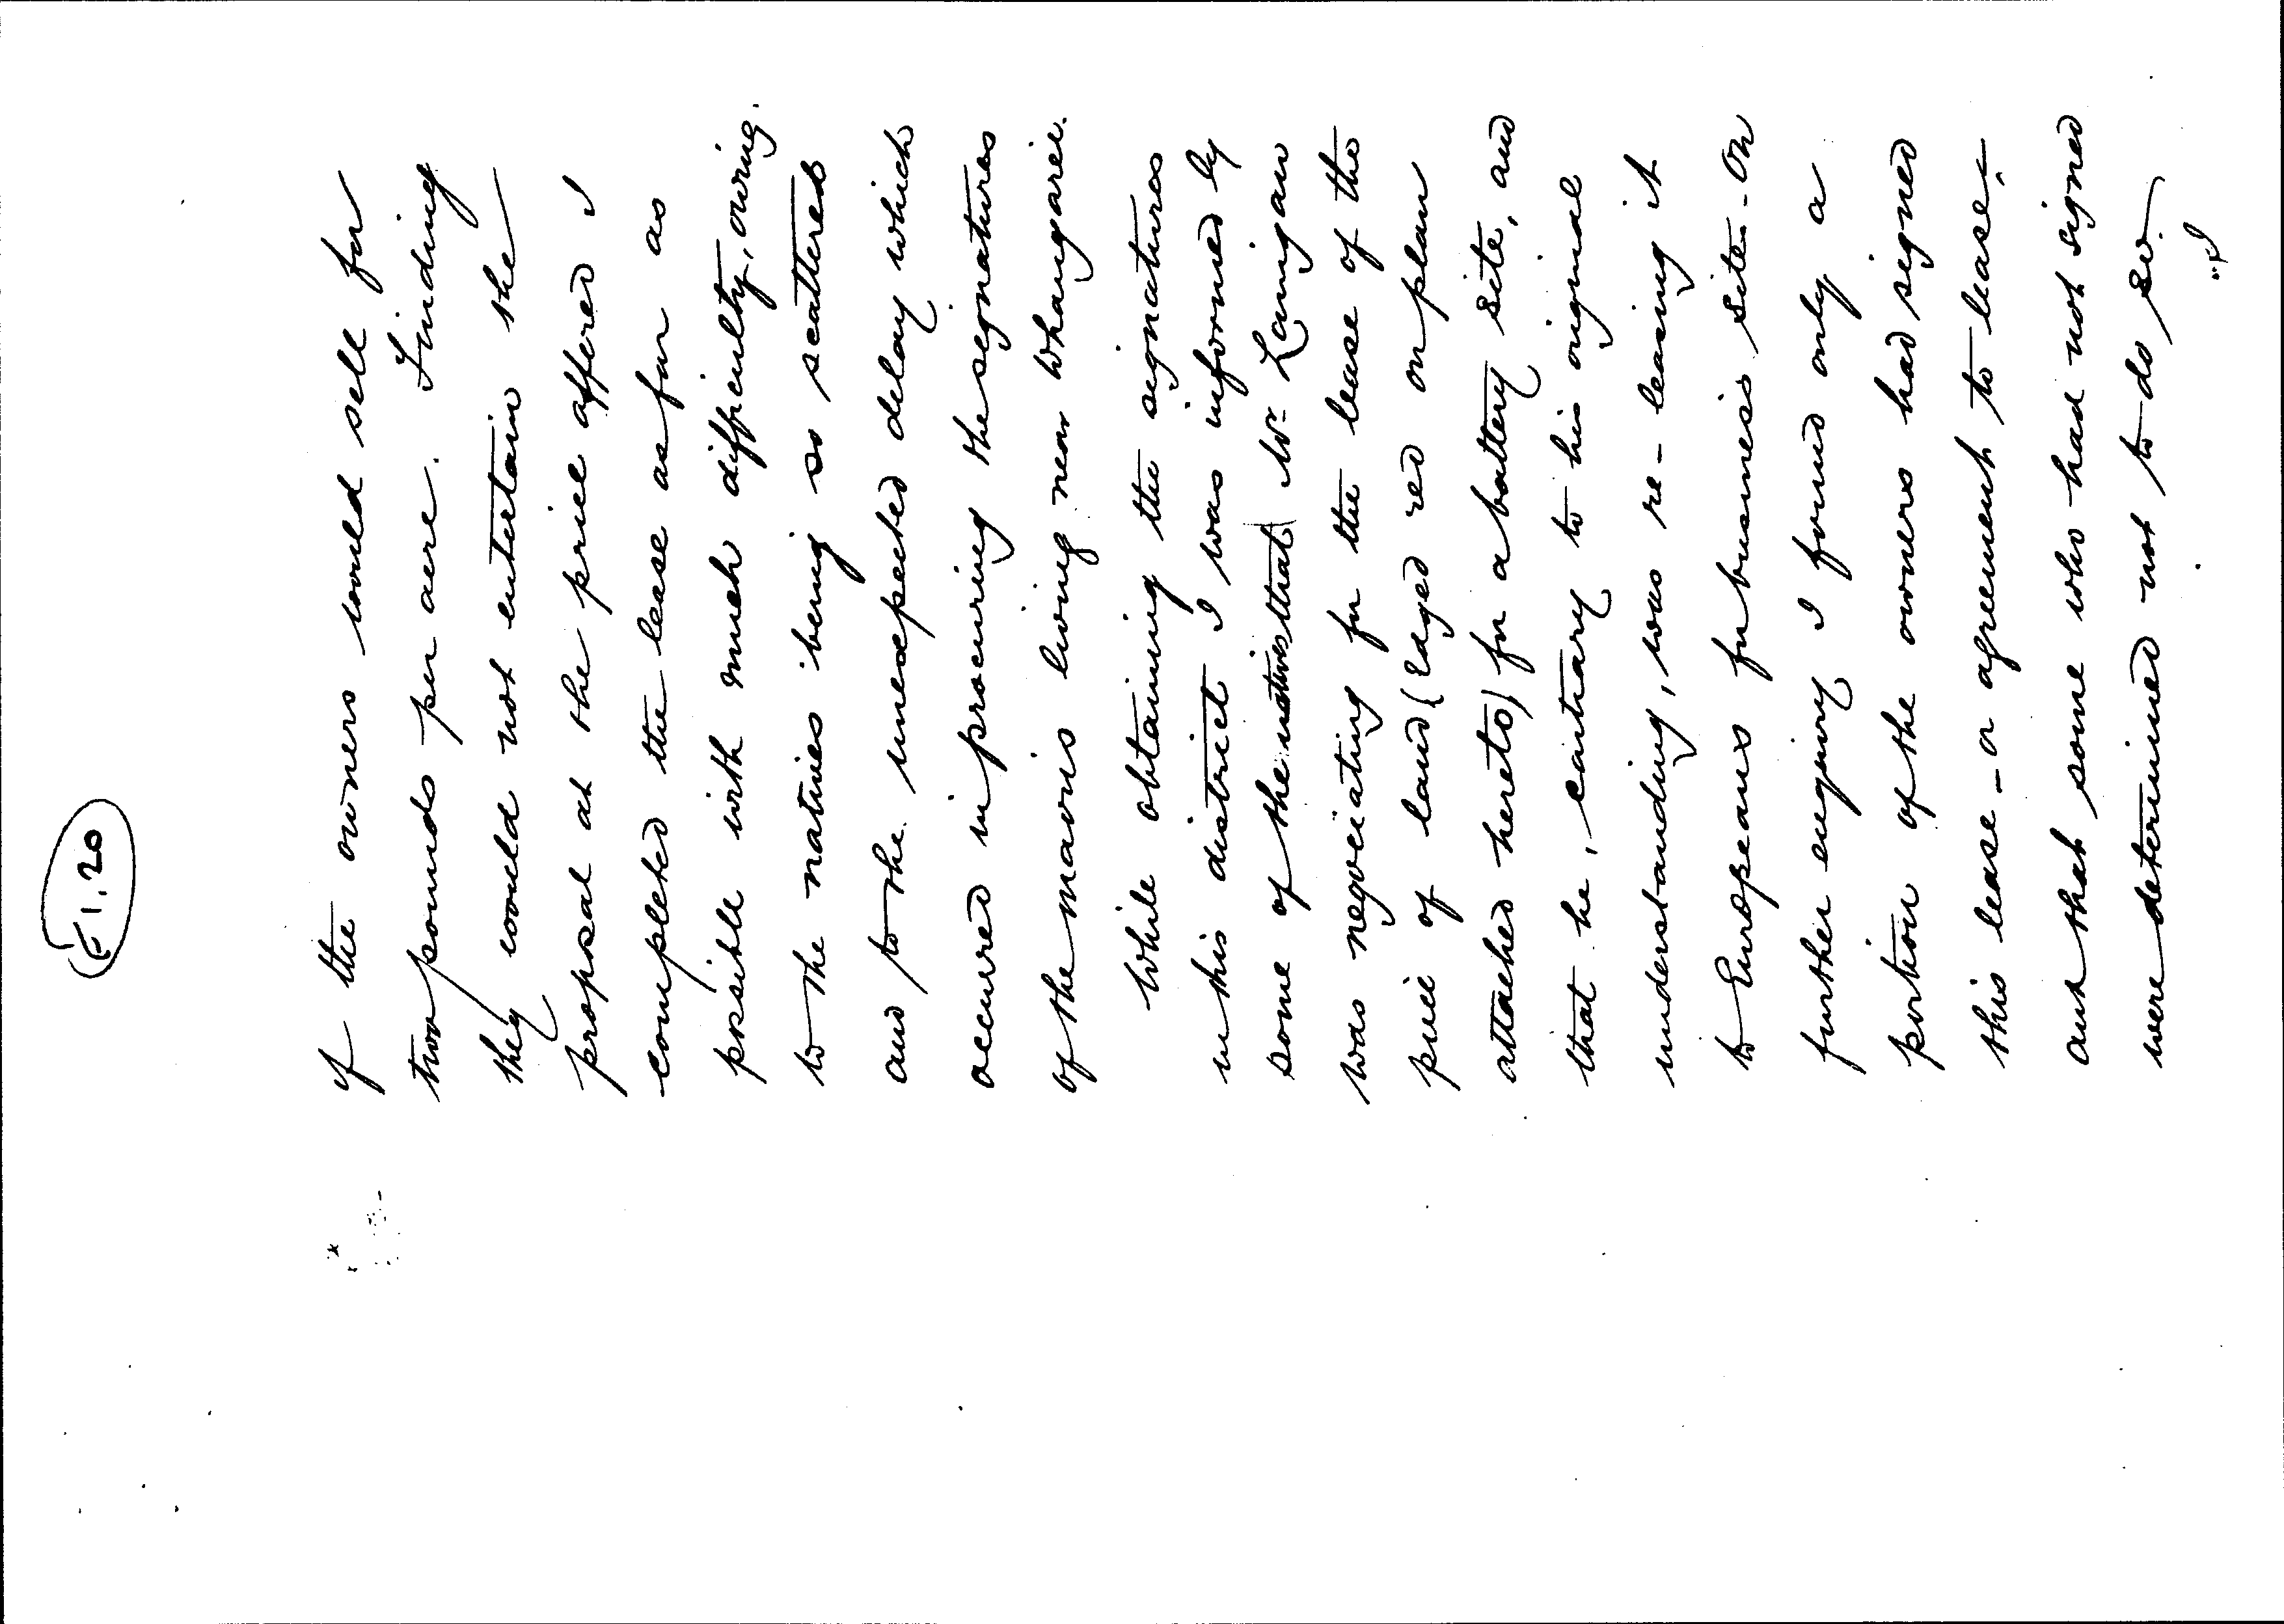 E1.20
if the owners would sell for
two pounds per acre. Finding
they would not entertain the
proposal at the price offered I
completed the lease as far as
possible with much difficulty, owing
to the natives being so scattered
and to the unexpected delay which
occured in procuring the signatures
of the maoris living near Whangarei.
While obtaining the signatures
in this district I was informed by
some of the natives that Mr. Lanigan
was negociating for the lease of the
piece of land (edged red on plan
attached hereto) for a battery site, and
that he, contrary to his original
understanding, was re-leasing it
to Europeans for business sites. On
further enquiry I found only a
portion of the owners had signed
this lease - or agreement to lease -
and that some who had not signed
were determined not to do so.